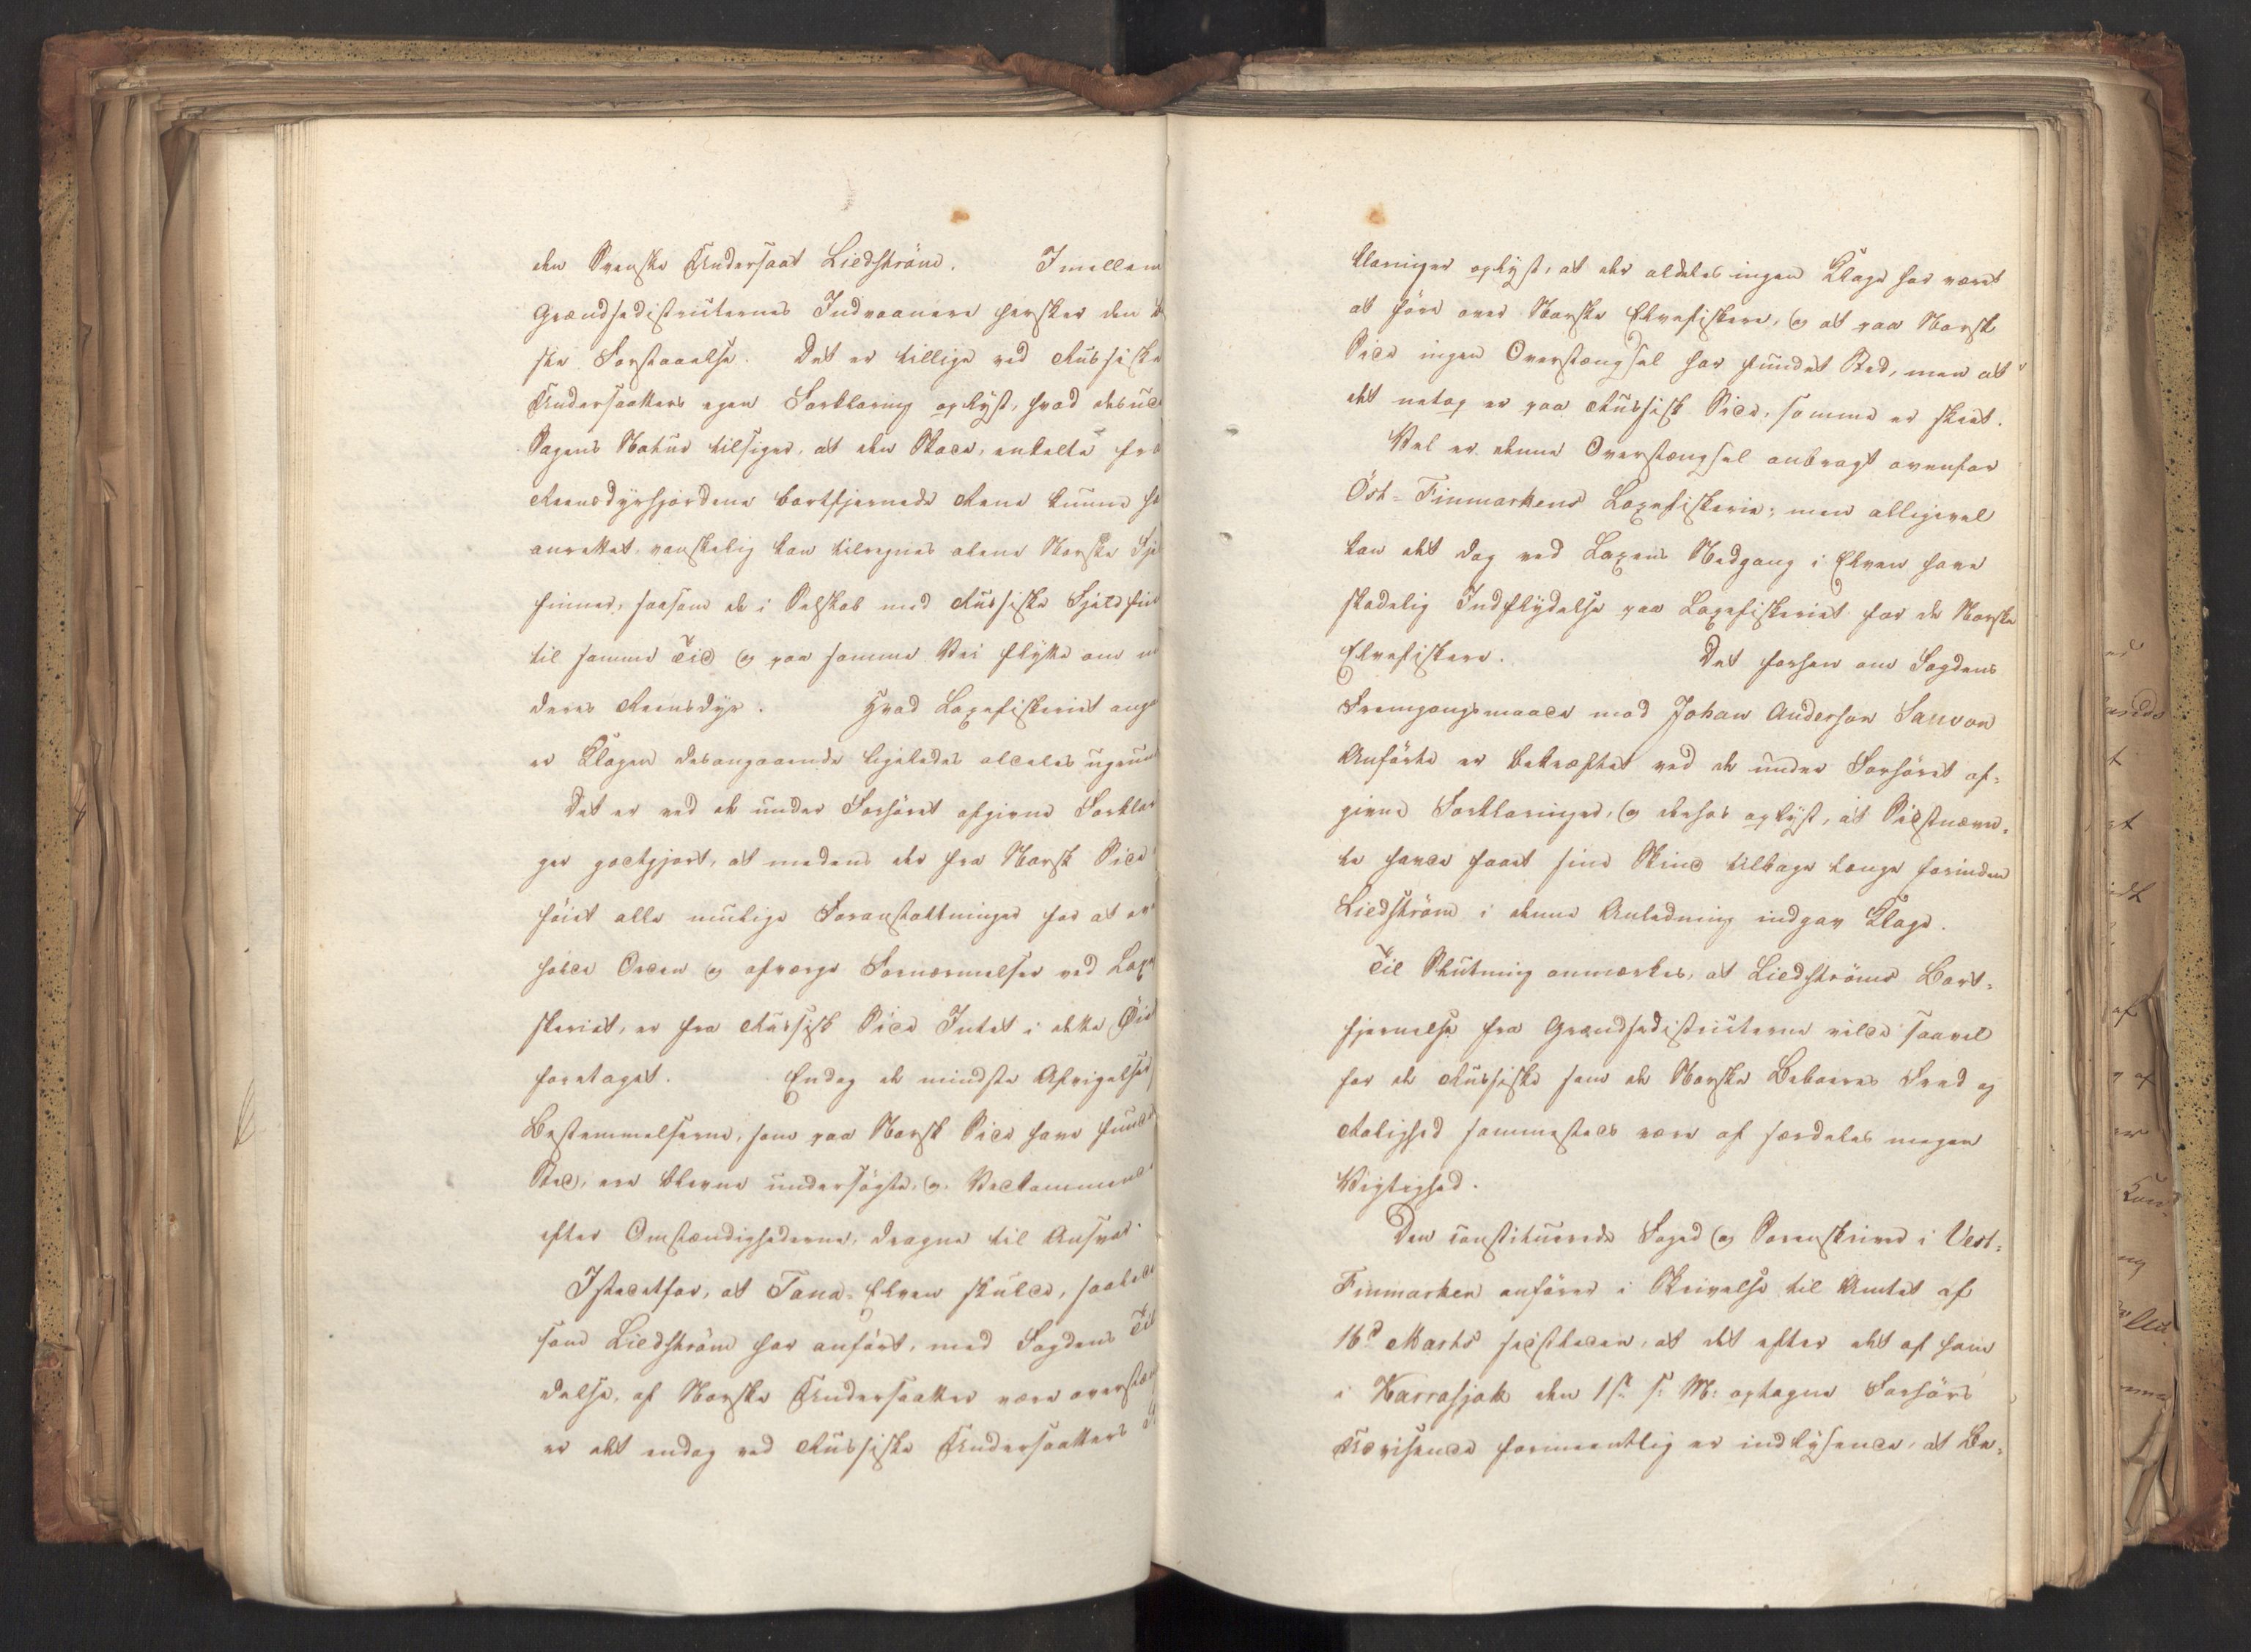 den Svenske Undersaat Liedström. Imellem
Grændsedistricternes Indvaanere hersker den b
ste Forstaaelse. Det er tillige ved Russiske
Undersaatters egen Forklaring oplyst, hvad desud
Sagens Natur tilsiger, at den Skade, enkelte fra
Reensdyrhjordene bortfjernede Rene kunne ha
anrettet vanskelig kan tilregnes alene Norske Fje
finner, saasom de i Selskab med Russiske Fjeldfin
til samme Tid og paa samme Vei flytte om m
deres Reensdyr. Hvad Laxefiskeriet anga
er Klagen desangaaende ligeledes aldeles ugrun
Det er ved de under Forhöret afgivne Forklar
ger godtgjort, at medens der fra Norsk Side
föiet alle mulige Foranstaltninger for at ov
holde Orden og afværge Fornærmelser ved Laxe
skeriet, er fra Russisk Side Intet i dette Øie
foretaget. Endog de mindste Afvigelser
Bestemmelserne, som paa Norsk Side have fund
Sted, ere blevne undersögte, og Vedkommende
efter Omstændighederne, dragne til Ansvar.
Istedetfor, at Tana-Elven skulde, saalede
som Liedström har anfört, med Fogdens Til
delse, af Norske Undersaatter være overstæn
er det endog ved Russiske Undersaatters
klaringer oplyst, at der aldeles ingen Klage har været
at före over Norske Elvefiskere, og at paa Norsk
Side ingen Overstængsel har fundet Sted, men at
det netop er paa Russisk Side, samme er skeet.
Vel er denne Overstængsel anbragt ovenfor
Öst-Finmarkens Laxefiskerie; men alligevel
kan det dog ved Laxens Nedgang i Elven have
skadelig Indflydelse paa Laxefiskeriet for de Norske
Elvefiskere. Det forhen om Fogdens
Fremgangsmaade mod Johan Anderson Sauvon
Anförte er bekræftet ved de under Forhöret af-
givne Forklaringer, og derhos oplyst, at Sidstnævn-
te havde faaet sine Skind tilbage længe forinden
Liedström i denne Anledning indgav Klage.
Til Slutning anmærkes, at Liedströms Bort-
fjernelse fra Grændsedistricterne vilde saavel
for de Russiske som de Norske Beboeres Fred og
Rolighed sammesteds være af særdeles megen
Vigtighed.
Den constituerede Foged og Sorenskriver i Vest-
Finmarken anförer i Skrivelse til Amtet af
16d Marts sidstleden, at det efter det af ham
i Karrasjok den 1ste s: M: optagne Forhörs
Udvisende formeentlig er indlysende, at Be-